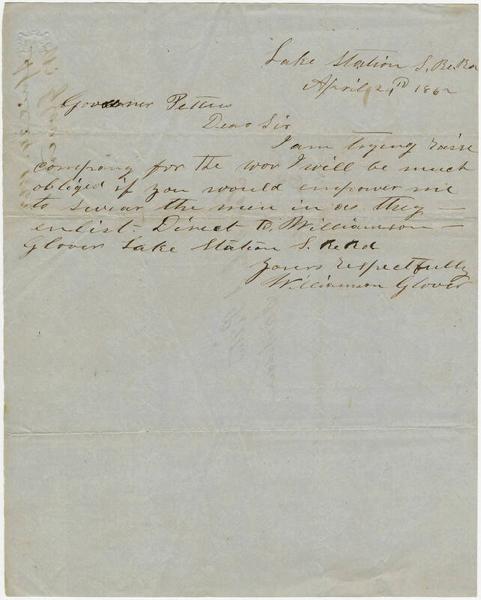 Lake Station S. R. R.
April 21th 1862
Governor Pettus
Dear Sir
I am trying raise
company for the wor I will be much
obliged if you would empower me
to swear the men in as they —
enlist. Direct to Williamson —
Glover Lake Station S. R Rd
Yours respectfully
Williamson Glover